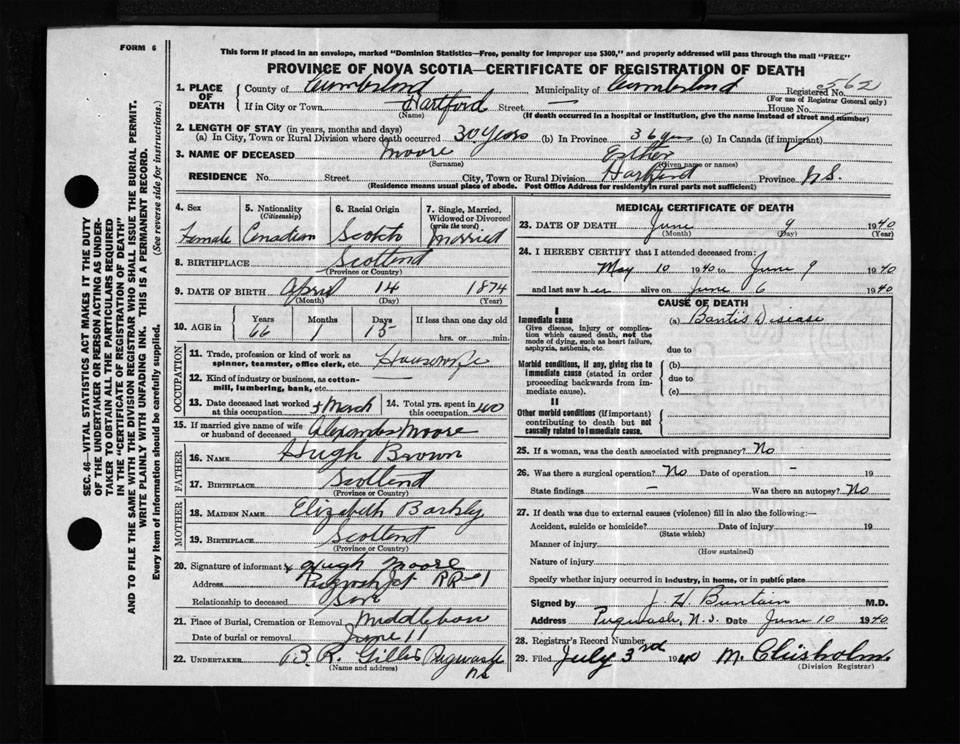 FORM 6
This form if placed in an envelope, marked "Dominion Statistics—Free, penalty for improper use $300," and properly addressed will pass through the mail "FREE"
PROVINCE OF NOVA SCOTIA—CERTIFICATE OF REGISTRATION OF DEATH
1. PLACE OF DEATH
County of Cumberland Municipality of Cumberland Registered No. 562
(For use of Registrar General only)
If in City or Town Hartford Street — House No.
(Name) (If death occurred in a hospital or institution, give the name instead of street and number)
2. LENGTH OF STAY (in years, months and days)
(a) In City, Town or Rural Division where death occurred 30 years (b) In Province 36 yrs (c) In Canada (if immigrant)
3. NAME OF DECEASED Moore Esther
(Surname) (Given name or names)
RESIDENCE No. Street City, Town or Rural Division Hartford Province N.S.
(Residence means usual place of abode. Post Office Address for residents in rural parts not sufficient)
4. Sex Female
5. Nationality (Citizenship) Canadian
6. Racial Origin Scotch
7. Single, Married, Widowed or Divorced (write the word) Married
8. BIRTHPLACE Scotland
(Province or Country)
9. DATE OF BIRTH April 14 1874
(Month) (Day) (Year)
10. AGE in Years Months Days If less than one day old
66 1 15 hrs. or min.
OCCUPATION
11. Trade, profession or kind of work as spinner, teamster, office clerk, etc. Housewife
12. Kind of industry or business, as cotton-mill, lumbering, bank, etc. —
13. Date deceased last worked at this occupation March
14. Total yrs. spent in this occupation 40
15. If married give name of wife or husband of deceased Alexander Moore
FATHER
16. NAME Hugh Brown
17. BIRTHPLACE Scotland
(Province or Country)
MOTHER
18. MAIDEN NAME Elizabeth Barkly
19. BIRTHPLACE Scotland
(Province or Country)
20. Signature of informant x Hugh Moore
Address Pugwash Jct RR-1
Relationship to deceased Son
21. Place of Burial, Cremation or Removal Middleboro
Date of burial or removal June 11
22. UNDERTAKER B. R. Gillis Pugwash NS
(Name and address)
MEDICAL CERTIFICATE OF DEATH
23. DATE OF DEATH June 9 1940
(Month) (Day) (Year)
24. I HEREBY CERTIFY that I attended deceased from:
May 10 1940 to June 9 1940
and last saw her alive on June 6 1940
CAUSE OF DEATH
I
Immediate cause (a) Banti's Disease
Give disease, injury or complication which caused death, not the mode of dying, such as heart failure, asphyxia, asthenia, etc.
due to
Morbid conditions, if any, giving rise to immediate cause (stated in order proceeding backwards from immediate cause).
(b)
due to
(c)
II
Other morbid conditions (if important) contributing to death but not causally related to immediate cause.
25. If a woman, was the death associated with pregnancy? No
26. Was there a surgical operation? No Date of operation — 19
State findings — Was there an autopsy? No
27. If death was due to external causes (violence) fill in also the following:—
Accident, suicide or homicide? Date of injury 19
(State which)
Manner of injury
(How sustained)
Nature of injury
Specify whether injury occurred in industry, in home, or in public place
Signed by J. H. Buntain M.D.
Address Pugwash, N.S. Date June 10 1940
28. Registrar's Record Number
29. Filed July 3rd 1940 M. Chisholm
(Division Registrar)
SEC. 46—VITAL STATISTICS ACT MAKES IT THE DUTY
OF THE UNDERTAKER OR PERSON ACTING AS UNDER-
TAKER TO OBTAIN ALL THE PARTICULARS REQUIRED
IN THE "CERTIFICATE OF REGISTRATION OF DEATH"
AND TO FILE THE SAME WITH THE DIVISION REGISTRAR WHO SHALL ISSUE THE BURIAL PERMIT.
WRITE PLAINLY WITH UNFADING INK. THIS IS A PERMANENT RECORD.
Every item of information should be carefully supplied. (See reverse side for instructions.)